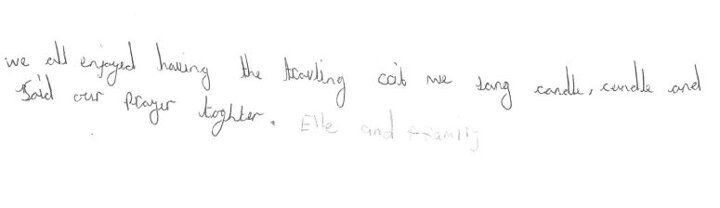 we all enjoyed having the travling cot we sang candle, candle and
Said our Prayer toghter. Elle and Family